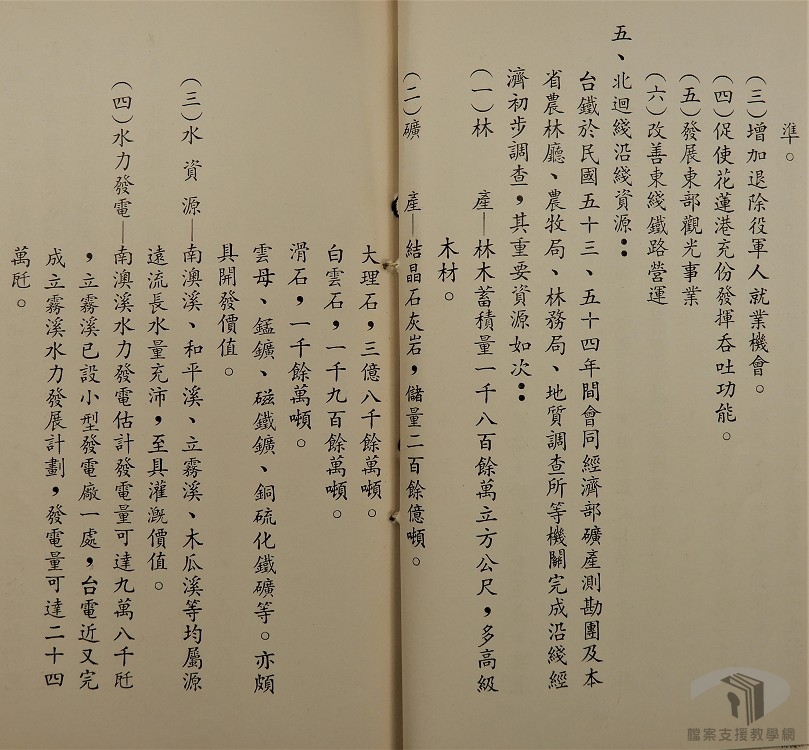 準。
（三）增加退除役軍人就業機會。
（四）促使花蓮港充份發揮吞吐功能。
（五）發展東部觀光事業
（六）改善東綫鐵路營運
五、北迴綫沿綫資源：
台鐵於民國五十三、五十四年間會同經濟部礦產測勘團及本
省農林廳、農牧局、林務局、地質調查所等機關完成沿綫經
濟初步調查，其重要資源如次：
（一）林　　產—林木蓄積量一千八百餘萬立方公尺，多高級
木材。
（二）礦　　產—結晶石灰岩，儲量二百餘億噸。
大理石，三億八千餘萬噸。
白雲石，一千九百餘萬噸。
滑石，一千餘萬噸。
雲母、錳鑛、磁鐵鑛、銅硫化鐵礦等。亦頗
具開發價值。
（三）水資源—南澳溪、和平溪、立霧溪、木瓜溪等均屬源
遠流長水量充沛，至具灌溉價值。
（四）水力發電—南澳溪水力發電估計發電量可達九萬八千瓩
，立霧溪已設小型發電廠一處，台電近又完
成立霧溪水力發展計劃，發電量可達二十四
萬瓩。
檔案支援教學網